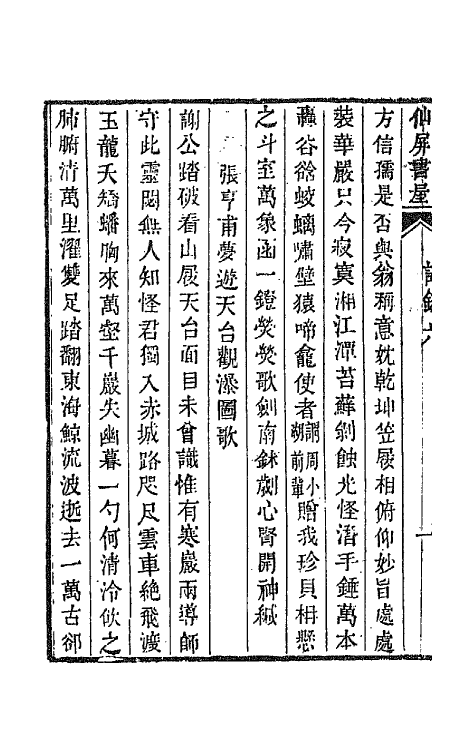 仙屏書屋
詩錄
方信孺是否與翁稱意就乾坤笠屐相俯仰妙旨處處
裝華嚴只今寂寞湘江潭苔蘚剝蝕光怪潛手錘萬本
轟谷谽蛟螭嘯壁猿啼龕使者謂周小湖前輩贈我珍貝相懸
之斗室萬象函一鐙熒熒歌劍南鉥劌心腎開神緘
張亨甫夢遊天台觀瀑圖歌
謝公踏破看山屐天台面目未曾識惟有寒巖兩導師
守此靈閟無人知怪君獨入赤城路咫尺雲車絶飛渡
玉龍夭矯蟠胸來萬壑千巖失幽暮一勺何清泠飲之
肺腑清萬里濯雙足踏翻東海鯨流波逝去一萬古卻